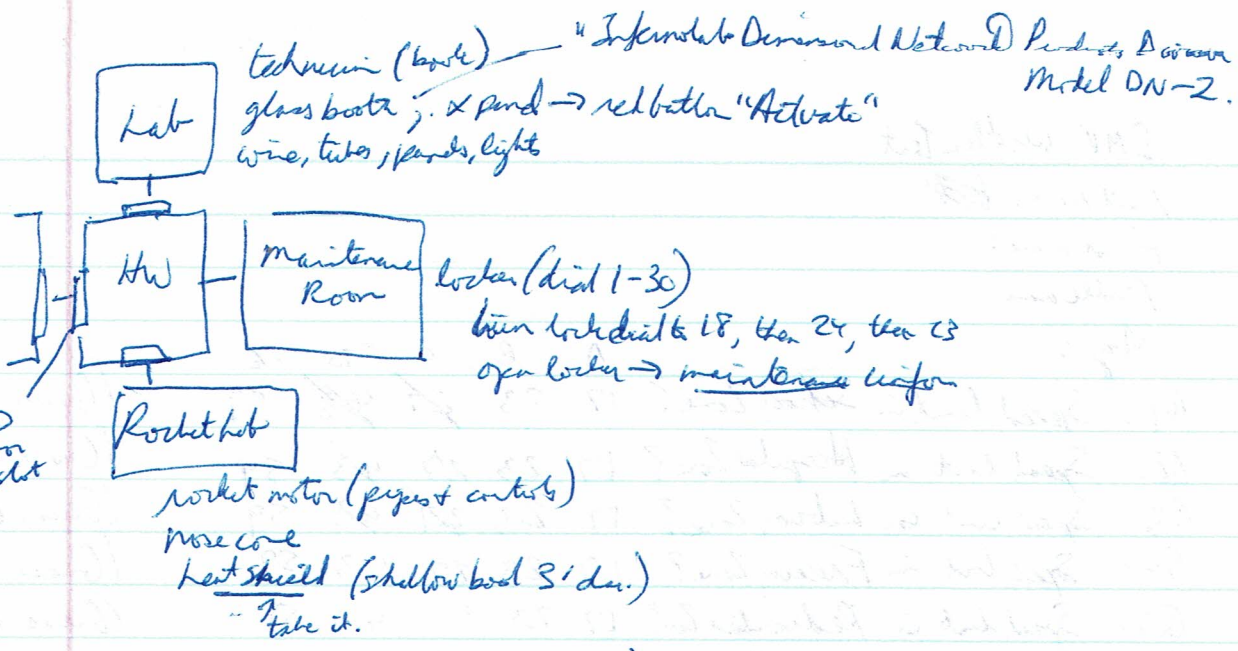 "Infernolab Dimensional Network Products Division
Model DN-2.
technician (booth)
glass booth ; . panel → red button "Activate"
wire, tubes, panels, lights
Lab
HW
Maintenance
Room
locker (dial 1-30)
turn lock dial to 18, then 24, then 13
open locker → maintenance uniform
Rocket Lab
slot
rocket motor (pipes + controls)
nose cone
heat shield (shallow bowl 3' dia.)
↑
take it.